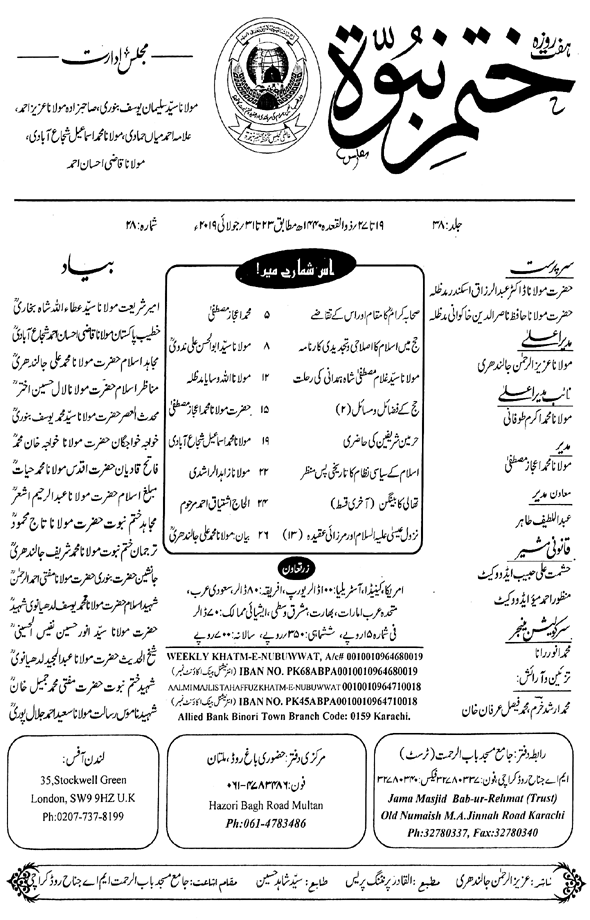 ہفت روزہ
ختم نبوۃ
مجلس ادارت
مولانا سید سلیمان یوسف بنوری، صاحبزادہ مولانا عزیز احمد،
علامہ احمد میاں حمادی، مولانا محمد اسماعیل شجاع آبادی،
مولانا قاضی احسان احمد
جلد: ۳۸
۱۹ تا ۲۷؍ ذوالقعدہ ۱۴۴۰ھ مطابق ۲۳ تا ۳۱؍ جولائی ۲۰۱۹ء
شمارہ: ۲۸
سرپرست
حضرت مولانا ڈاکٹر عبدالرزاق اسکندر مدظلہ
حضرت مولانا حافظ ناصر الدین خاکوانی مدظلہ
مدیر اعلیٰ
مولانا عزیز الرحمٰن جالندھری
نائب مدیر اعلیٰ
مولانا محمد اکرم طوفانی
مدیر
مولانا محمد اعجاز مصطفیٰ
معاون مدیر
عبداللطیف طاہر
قانونی مشیر
حشمت علی حبیب ایڈووکیٹ
منظور احمد میؤ ایڈووکیٹ
سرکولیشن منیجر
محمد انور رانا
تزئین و آرائش:
محمد ارشد خرم، محمد فیصل عرفان خان
اس شمارے میں!
صحابہ کرامؓ کا مقام اور اس کے تقاضے ۵ محمد اعجاز مصطفیٰ
حج میں اسلام کا اصلاحی و تجدیدی کارنامہ ۸ مولانا سید ابوالحسن علی ندویؒ
مولانا سید غلام مصطفیٰ شاہ ہمدانی کی رحلت ۱۲ مولانا اللہ وسایا مدظلہ
حج کے فضائل و مسائل (۲) ۱۵ حضرت مولانا محمد اعجاز مصطفیٰ
حرمین شریفین کی حاضری ۱۹ مولانا محمد اسماعیل شجاع آبادی
اسلام کے سیاسی نظام کا تاریخی پس منظر ۲۲ مولانا زاہد الراشدی
تھالی کا بینگن (آخری قسط) ۲۴ الحاج اشتیاق احمد مرحوم
نزول عیسیٰ علیہ السلام اور مرزائی عقیدہ (۱۳) ۲۶ بیان: مولانا محمد علی جالندھریؒ
زر تعاون
امریکا، کینیڈا، آسٹریلیا: ۱۰۰ ڈالر یورپ، افریقہ: ۸۰ ڈالر، سعودی عرب،
متحدہ عرب امارات، بھارت، مشرق وسطیٰ، ایشیائی ممالک: ۷۰ ڈالر
فی شمارہ ۱۵ روپے، ششماہی: ۳۵۰ روپے، سالانہ: ۷۰۰ روپے
WEEKLY KHATM-E-NUBUWWAT, A/c# 0010010964680019
IBAN NO. PK68ABPA0010010964680019 (انٹرنیشنل بینک اکاؤنٹ نمبر)
AALMI MAJLIS TAHAFFUZ KHATM-E-NUBUWWAT 0010010964710018
IBAN NO. PK45ABPA0010010964710018 (انٹرنیشنل بینک اکاؤنٹ نمبر)
Allied Bank Binori Town Branch Code: 0159 Karachi.
بیاد
امیر شریعت مولانا سید عطاء اللہ شاہ بخاریؒ
خطیب پاکستان مولانا قاضی احسان احمد شجاع آبادیؒ
مجاہد اسلام حضرت مولانا محمد علی جالندھریؒ
مناظر اسلام حضرت مولانا لال حسین اخترؒ
محدث العصر حضرت مولانا سید محمد یوسف بنوریؒ
خواجہ خواجگان حضرت مولانا خواجہ خان محمدؒ
فاتح قادیان حضرت اقدس مولانا محمد حیاتؒ
مبلغ اسلام حضرت مولانا عبدالرحیم اشعرؒ
مجاہد ختم نبوت حضرت مولانا تاج محمودؒ
ترجمان ختم نبوت حضرت مولانا محمد شریف جالندھریؒ
جانشین حضرت بنوری حضرت مولانا مفتی احمد الرحمٰنؒ
شہید اسلام حضرت مولانا محمد یوسف لدھیانوی شہیدؒ
حضرت مولانا سید انور حسین نفیس الحسینیؒ
شیخ الحدیث حضرت مولانا عبدالمجید لدھیانویؒ
شہید ختم نبوت حضرت مفتی محمد جمیل خانؒ
شہید ناموس رسالت مولانا سعید احمد جلال پوریؒ
رابطہ دفتر: جامع مسجد باب الرحمت (ٹرسٹ)
ایم اے جناح روڈ کراچی، فون: ۳۲۷۸۰۳۳۷ فیکس: ۳۲۷۸۰۳۴۰
Jama Masjid Bab-ur-Rehmat (Trust)
Old Numaish M.A.Jinnah Road Karachi
Ph:32780337, Fax:32780340
مرکزی دفتر: حضوری باغ روڈ، ملتان
فون: ۰۶۱-۴۷۸۳۴۸۶
Hazori Bagh Road Multan
Ph:061-4783486
لندن آفس:
35,Stockwell Green
London, SW9 9HZ U.K
Ph:0207-737-8199
ناشر: عزیز الرحمٰن جالندھری مطبع: القادر پرنٹنگ پریس طابع: سید شاہد حسین مقام اشاعت: جامع مسجد باب الرحمت ایم اے جناح روڈ کراچی